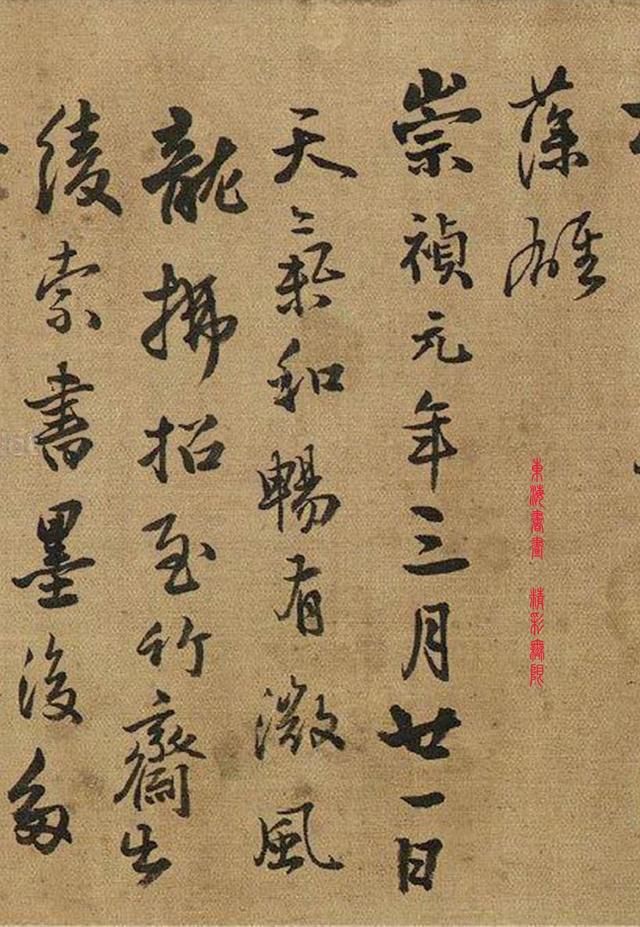 崇禎元年三月廿一日
天氣和暢有微風
龍拂招至竹齋出
綾索書墨後多
東海書畫 精彩無限